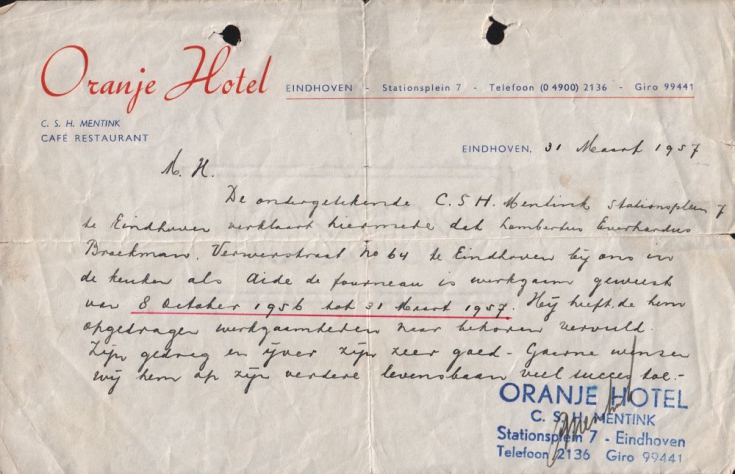 Oranje Hotel
EINDHOVEN - Stationsplein 7 - Telefoon (0 4900) 2136 - Giro 99441
C. S. H. MENTINK
CAFÉ RESTAURANT
EINDHOVEN, 31 Maart 1957
M. H.
De ondergetekende C. S. H. Mentink Stationsplein 7
te Eindhoven verklaart hiermede dat Lambertus Everhardus
Broekman, Ververstraat No 64 te Eindhoven bij ons in
de keuken als Aide de fourneau is werkzaam geweest
van 8 October 1956 tot 31 Maart 1957. Hij heeft de hem
opgedragen werkzaamheden naar behoren vervuld.
Zijn gedrag en ijver zijn zeer goed - Gaarne wensen
wij hem op zijn verdere levensbaan veel succes toe.-
ORANJE HOTEL
C. S. H. MENTINK
Stationsplein 7 - Eindhoven
Telefoon 2136 Giro 99441